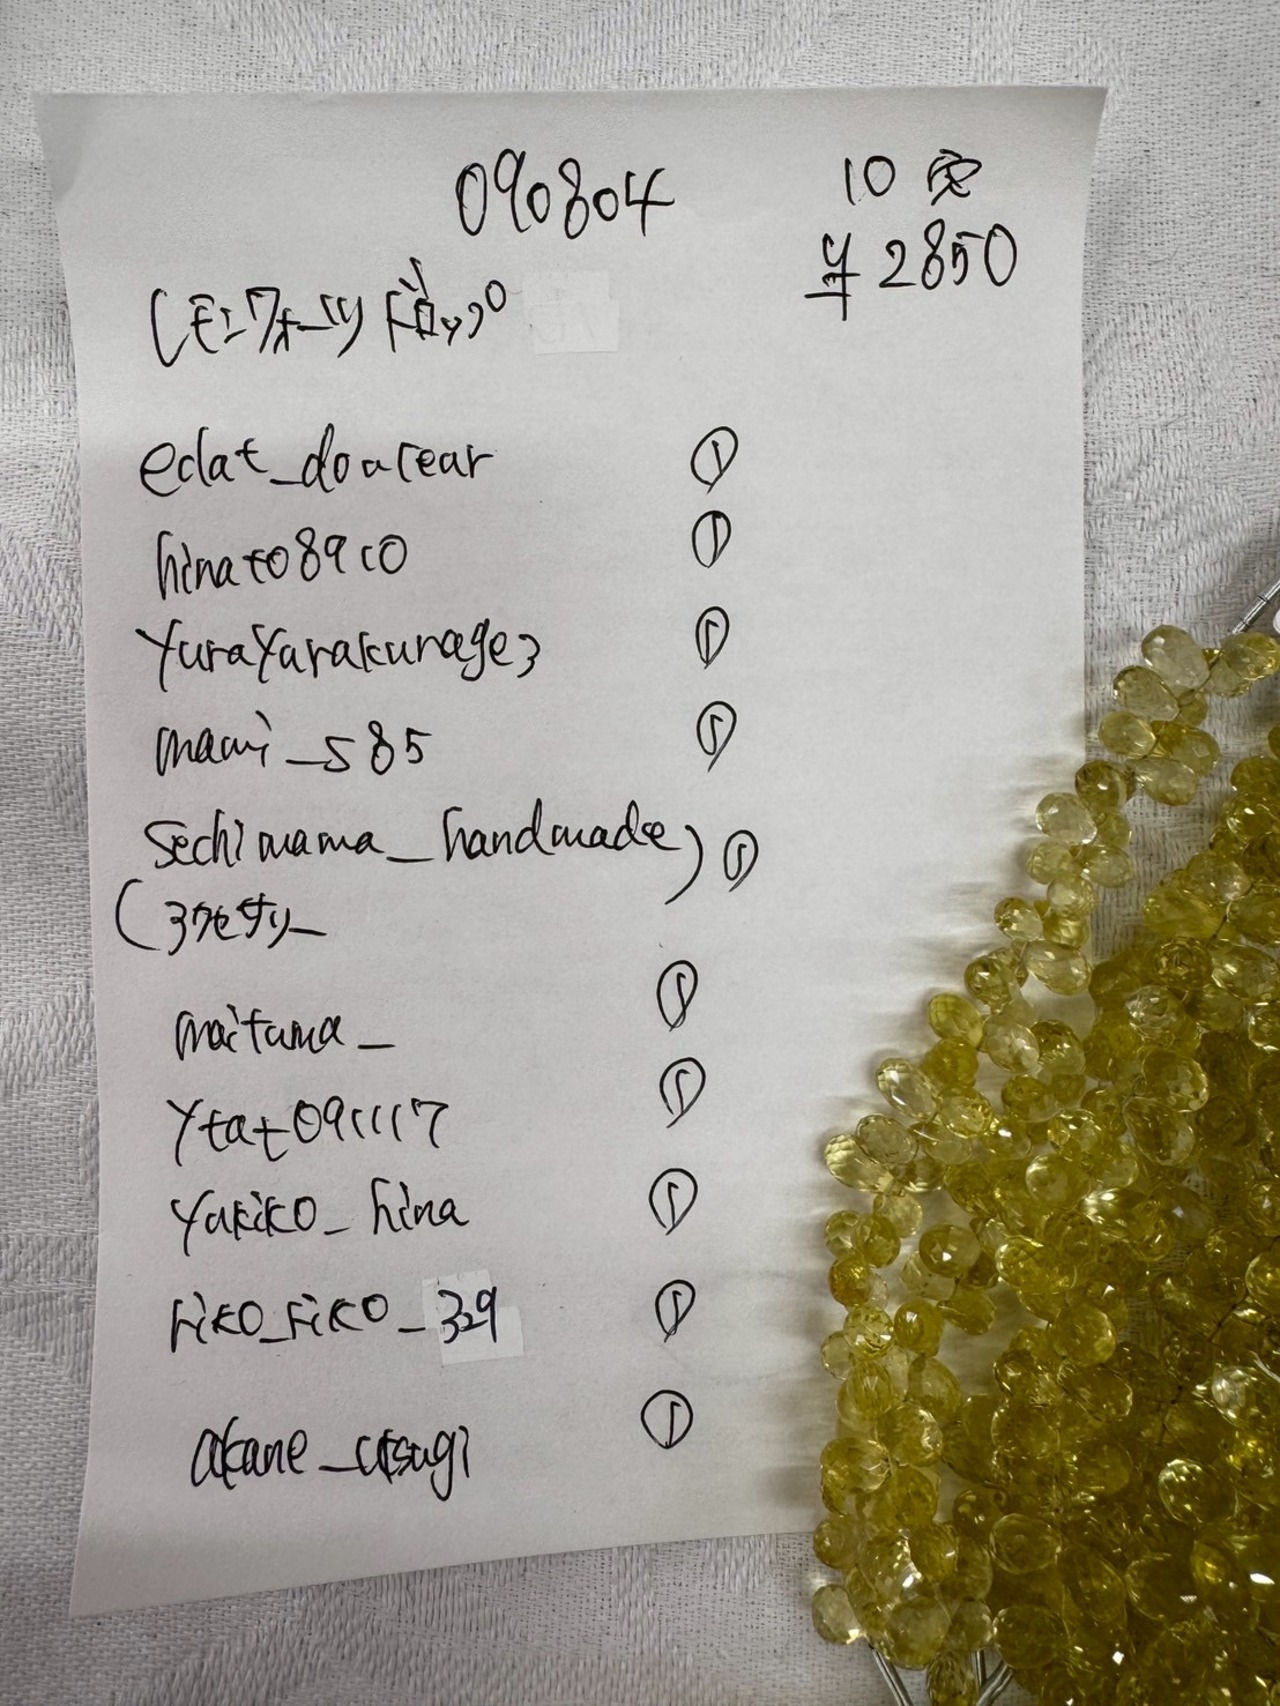 090804
10 定
¥2850
レモンクォーツ ドロップ
eclat_doucear ①
hinato8910 ①
yurayurakurage3 ①
mami_585 ①
sechimama_handmade) ①
maituma_ ①
ytat091117 ①
yukiko_hina ①
riko_riko_329 ①
akane_utsugi ①